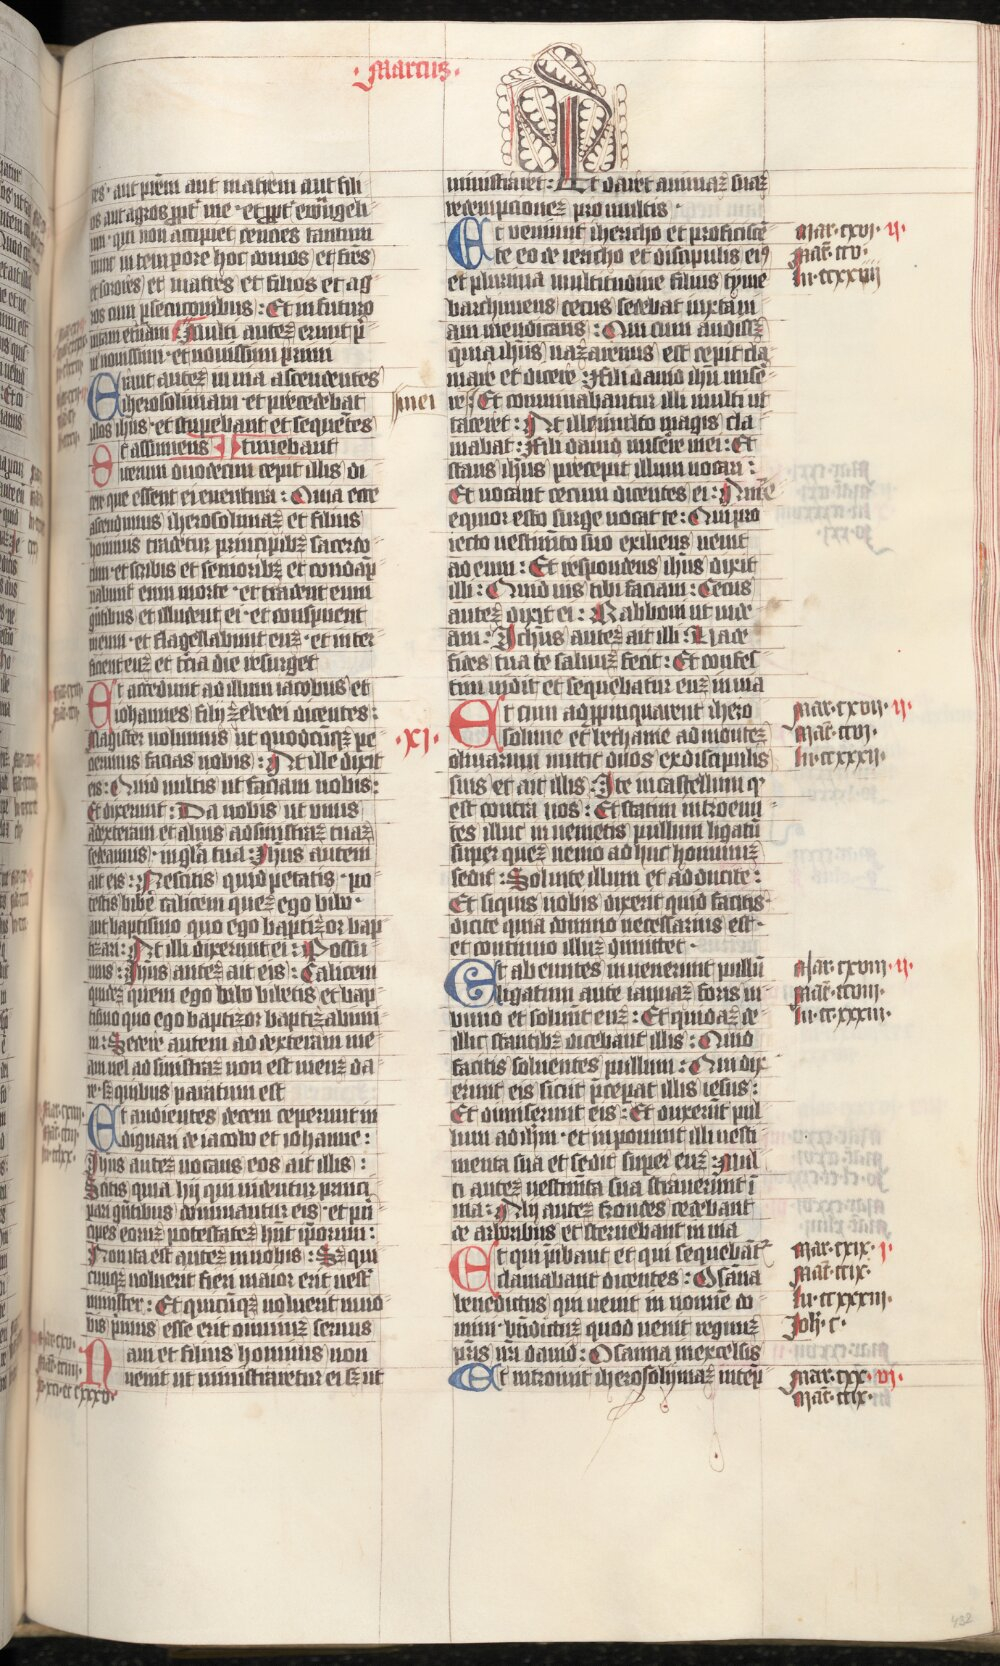 .Marcus.
res· aut prēm aut matrem aut fili
os aut agros ꝓpt' me · et ꝓpt' ewāgeli
um · qui non accipiet centies tantum
nunc in tempore hoc domos et frēs
et sorores et matres et filios et ag
ros cum ꝑsecucionibus : Et in futuro
uitam etnam Multi autez erunt p̄
mi nouissimi · et nouissimi primi
Erant autez in uia ascendentes
iherosolimam · et precedebat
illos ihūs · et stupebant et sequētes
Et assumens timebant
iterum duodecim cepit illis di
cere que essent ei euentura : Quia ecce
ascendimus iherosolimaz et filius
hominis tradetur principibz sacerdo
tum · et scribis et senioribz et condāp
nabunt eum morte · et tradent eum
gētibus et illudent ei · et conspuent
meum · et flagellabunt euz · et inter
ficient euz et tercia die resurget
Et accedunt ad illum iacobus et
iohannes filij zebedei dicentes :
Magister uolumus ut quodcūqz pe
cierimus facias nobis : At ille dixit
eis : Quid uultis ut faciam uobis :
Et dixerunt : Da nobis ut unus
ad dexteram et alius ad sinistraz tuaz
sedeamus · in glīa tua : Ihūs autem
ait eis : Nescitis quid petatis · po
testis bibē calicem quez ego bibo ·
aut baptismo quo ego baptizor bap
tizari : At illi dixerunt ei : Possu
mus : Ihūs autez ait eis : Calicem
quidez quem ego bibo bibetis et bap
tismo quo ego baptizor baptizabimi
ni : Sedere autem ad dexteram me
am uel ad sinistraz non est meuz da
re · sz quibus paratum est
Et audientes decem ceperunt in
dignari de iacobo et iohanne :
Ihūs autez uocans eos ait illis :
Scitis quia hij qui uidentur princi
pari gētibus dominantur eis · et prī
cipes eoruz potestatez hn̄t ip̄orum :
Non ita est autez in uobis : Sz qui
cunqz uoluerit fieri maior erit uest'
minister : Et quicūqz uoluerit in uo
bis primus esse erit omniuz seruus
Nam et filius hominis non
uenit ut ministraretur ei sz ut
ministraret : Et daret animaz suaz
redempcionez pro multis ·
Et veniunt ihericho et proficiscē
te eo de iericho et discipulis eiꝰ
et plurima multitudine filius tyme
barchimeus cecus sedebat iuxta ui
am mendicans : Qui cum audissz
quia ihūs nazarenus est cepit cla
mare et dicere : Fili dauid ihū misē
mei
re Et comminabantur illi multi ut
taceret : At ille multo magis cla
mabat : Fili dauid miserē mei : Et
stans ihūs precepit illum uocari :
Et uocant cecum dicentes ei : Anīe
equior esto surge uocat te : Qui pro
iecto uestimēto suo exiliens uenit
ad eum : Et respondens ihūs dixit
illi : Quid uis tibi faciam : Cecus
autez dixit ei : Rabboni ut uide
am : Ihesus autez ait illi : Uade
fides tua te saluuz fecit : Et confes
tim uidit et sequebatur euz in uia
·XI·
Et cum appīnquarent ihero
solime et bethanie ad montez
oliuarum mittit duos ex discipulis
suis et ait illis : Ite in castellum qͥ
est contra uos : Et statim introeun
tes illuc inuenietis pullum ligatū
super quez nemo ad huc hominuz
sedit : Soluite illum et adducite :
Et siquis uobis dixerit quid facitis ·
dicite quia domino necessarius est ·
et continuo illuz dimittet ·
Et abeuntes inuenerunt pullū
ligatum ante ianuaz foris in
biuio et soluūt euz : Et quidaz de
illic stantibz dicebant illis : Quid
facitis soluentes pullum : Qui dix
erunt eis sicut p̄ceperat illis iesus :
Et dimiserunt eis : Et duxerūt pul
lum ad ihm · et imponunt illi uesti
menta sua et sedit super euz : Mul
ti autez uestimēta sua strauerunt ī
uia : Alij autez frondes cedebant
de arboribus et sternebant in uia
Et qui p̄ibant et qui sequebāt'
clamabant dicentes : Osāna
benedictus qui uenit in nomīe do
mini · bn̄dictuz quod uenit regnuz
pr̄is nr̄i dauid : Osanna in excelsis
Et introiuit iherosolymaz in tēp
Mar· cxvi· ij·
Mat̄· ccv·
Lu· ccxxiiij
Mar· cxvij· ij·
Mat̄· ccvi·
Lu· ccxxxij·
Mar· cxviij· ij·
Mat̄· ccviij·
Lu· ccxxxiij·
Mar· cxix· i·
Mat̄· ccix·
Lu· ccxxxiiij·
Joh̄· c·
Mar· cxx· vi·
Mat̄· ccix·
432